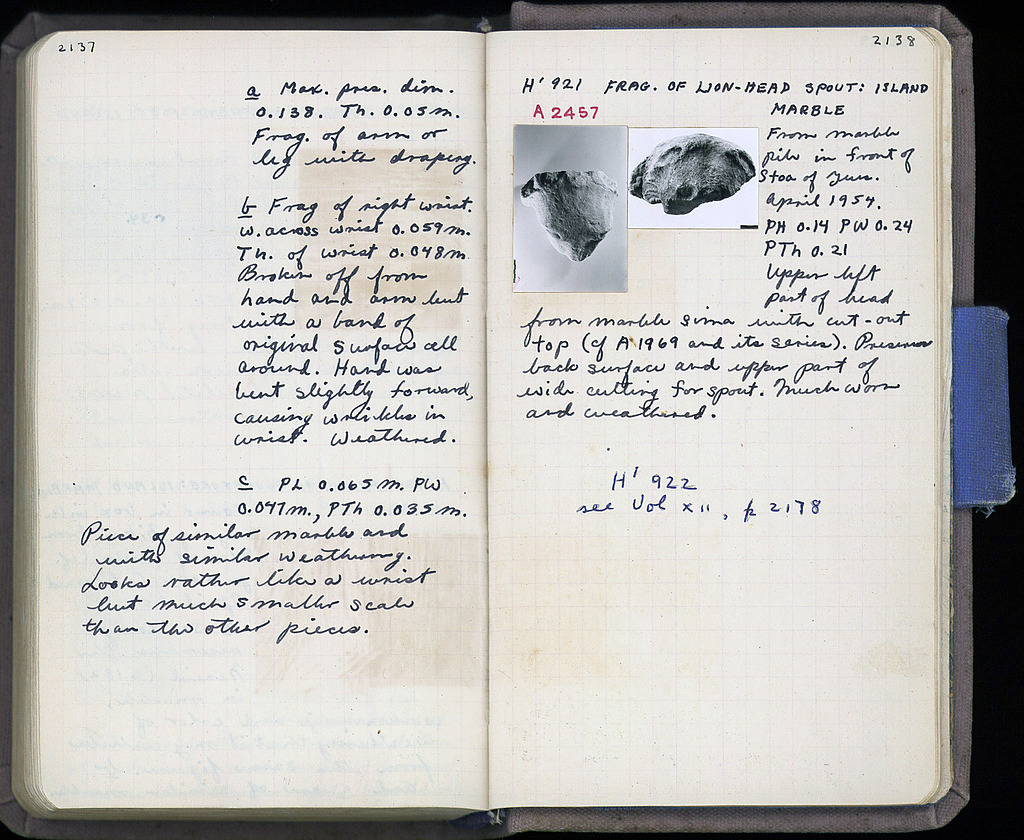 2137
a Max. pres. dim.
0.138. Th. 0.05m.
Frag. of arm or
leg with drapery.
b Frag of right wrist.
W. across wrist 0.059m.
Th. of wrist 0.048m.
Broken off from
hand and arm but
with a band of
original surface all
around. Hand was
bent slightly forward,
causing wrinkles in
wrist. Weathered.
c PL 0.065m. PW
0.047m., PTh 0.035m.
Piece of similar marble and
with similar weathering.
Looks rather like a wrist
but much smaller scale
than the other pieces.
2138
H' 921 FRAG. OF LION-HEAD SPOUT: ISLAND
A 2457 MARBLE
From marble
pile in front of
Stoa of Zeus.
April 1954.
PH 0.14 PW 0.24
PTh 0.21
Upper left
part of head
from marble sima with cut-out
top (cf A 1969 and its series). Preserves
back surface and upper part of
wide cutting for spout. Much worn
and weathered.
H' 922
see Vol XII, p 2178